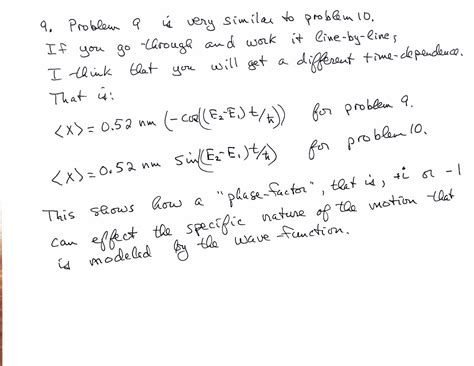 9. Problem 9 is very similar to problem 10.
If you go through and work it line-by-line,
I think that you will get a different time-dependence.
That is:
<x> = 0.52 nm (-cos((E₂-E₁)t/ħ)) for problem 9.
<x> = 0.52 nm sin((E₂-E₁)t/ħ) for problem 10.
This shows how a "phase-factor", that is, +i or -1
can effect the specific nature of the motion that
is modeled by the wave-function.